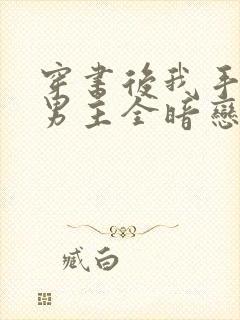 穿書後我手
男主全暗戀
臧白